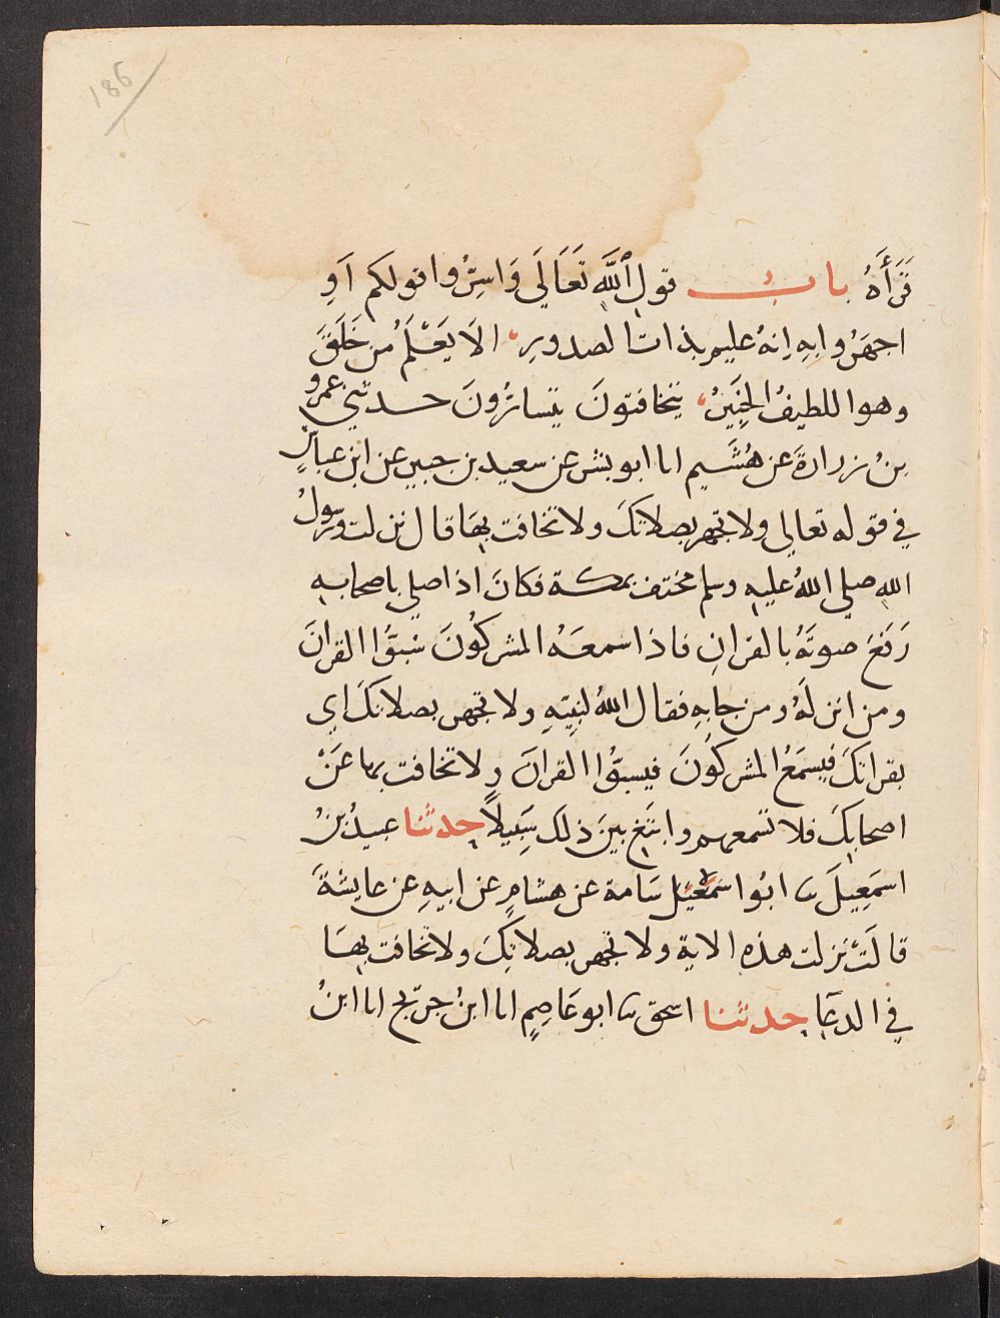 186
قَرَأَهُ باب قول اللَّهِ تَعَالَى وَاسِرُّوا قولكم اَوِ
اجهَرُوا بِهِ اِنهُ عليم بذات الصدورِ الَا يَعْلَمُ من خَلَقَ
وهوا للطيفُ الخَبِيْرُ يتخافتونَ يتسارُّونَ حدثني عمرو
بنُ زرارةَ عن هُشَيم انا ابو بشر عن سعيد بن جبير عن ابن عباسٍ
في قوله تعالى ولا تجهر بصلاتكَ ولا تخافت بِهَا قال نزلت ورسولُ
اللهِ صلى اللهُ عليهِ وسلم مختف بمكة فكانَ اذا صلى باصحابهِ
رَفَعَ صوتَهُ بالقرانِ فاذا سمعَهُ المشركُونَ سَبُّوا القرانَ
ومن انزلَهُ ومن جا بهِ فقال اللهُ لنبِيّهِ ولا تجهر بصلاتكَ اي
بقراتكَ فيسمَعُ المشركُونَ فيسبُّوا القرانَ ولا تخافت بها عَنْ
اصحابِكَ فلا تسمعهم وابتَغِ بينَ ذلك سَبِيلاً حدثنا عبيدُ بنُ
اسمَعِيلَ نا ابُو اسمعيل سَامة عن هشامٍ عن ابيهِ عن عايشةَ
قالَتْ نزلت هذه الاية ولا تجهر بصلاتِكَ ولا تخافت بِهَا
في الدعَا حدثنا اسحق نا ابو عَاصِمٍ انا ابنُ جريج انا ابنُ